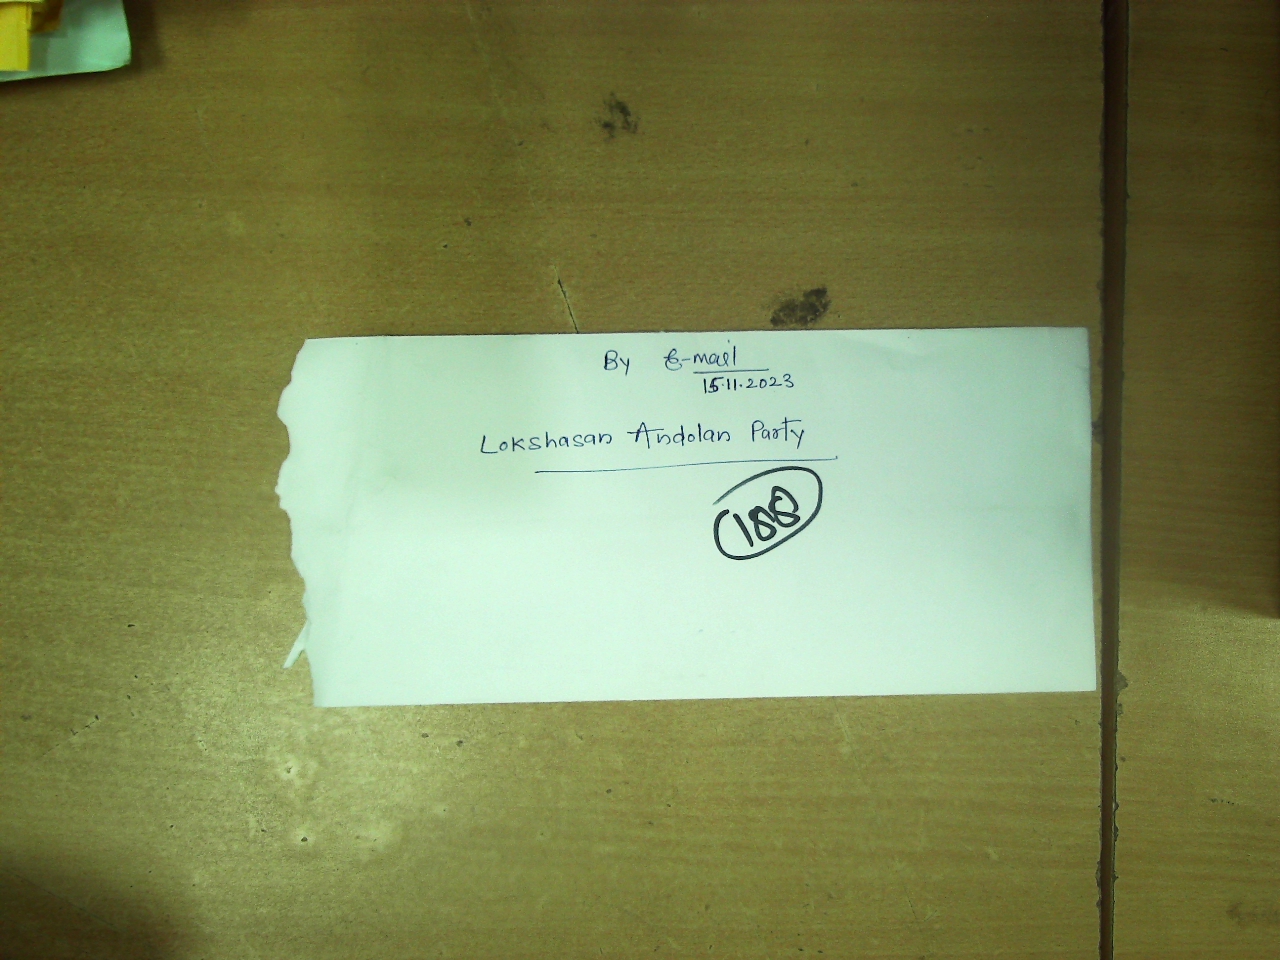 By E-mail
15.11.2023
Lokshasan Andolan Party
188